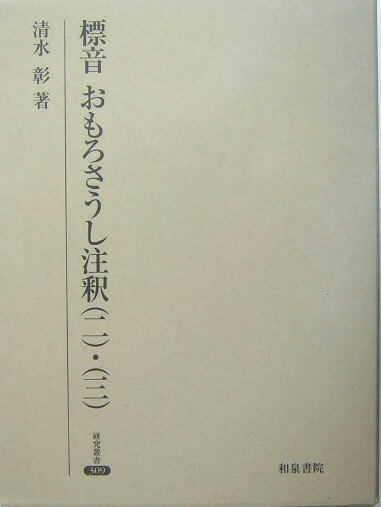 標音 おもろさうし注釈(二)・(三)
清水 彰 著
研究叢書
309
和泉書院